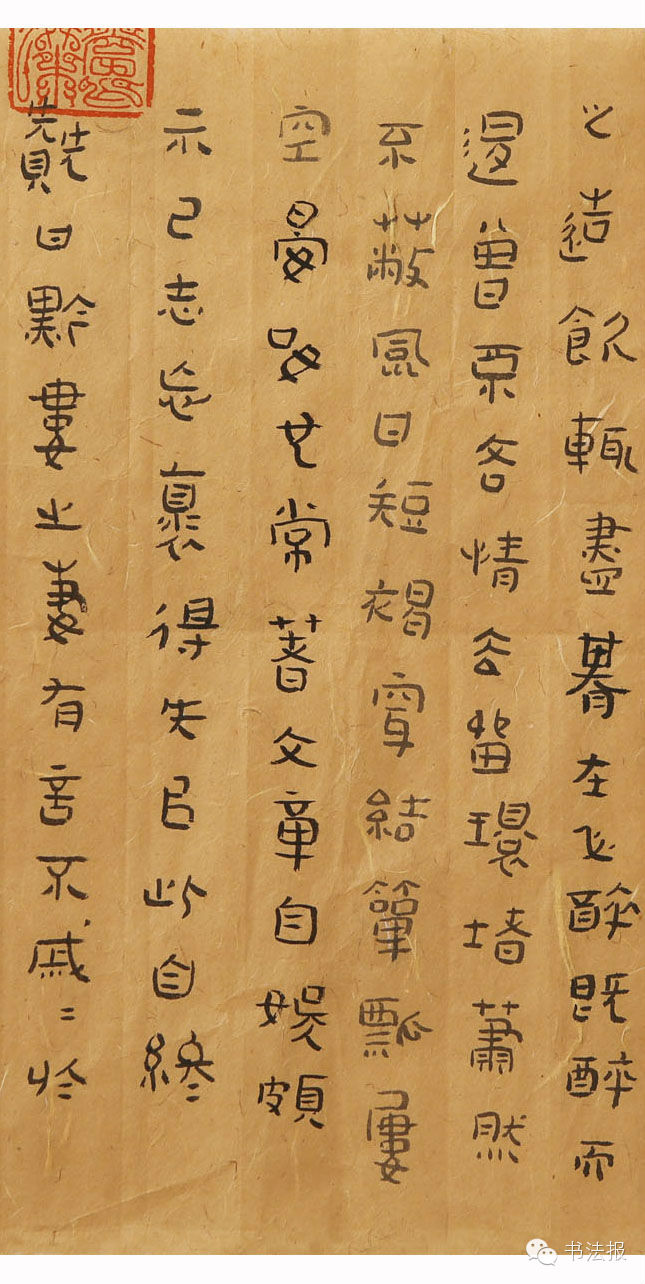 之造飲輒盡朞在必醉既醉而
退曾不吝情去留環堵蕭然
不蔽風日短褐穿結簞瓢屢
空晏如也常著文章自娛頗
示己志忘褱得失以此自終
贊曰黔婁之妻有言不戚〻於
书法报